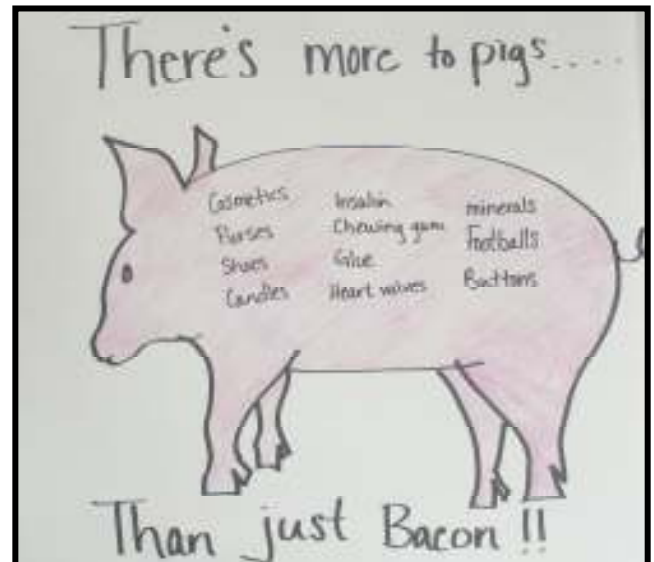 There's more to pigs....
Cosmetics
Purses
Shoes
Candles
Insulin
Chewing gum
Glue
Heart valves
minerals
Footballs
Buttons
Than just Bacon !!